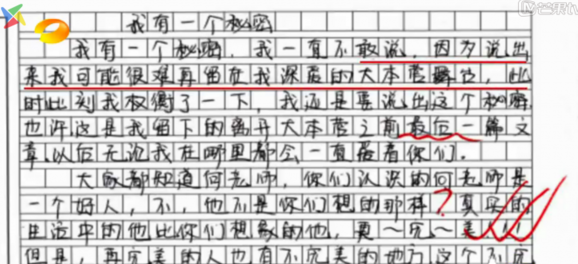 芒果tv
我有一个秘密
我有一个秘密,我一直不敢说,因为说出
来我可能很难再留在我深爱的大本营舞台,此
时此刻我权衡了一下,我还是要说出这个秘密
也许这是我留下的离开大本营之前最后一篇文
章,以后无论我在哪里都会一直爱着你们。
大家都知道何老师,你们认识的何老师是
一个好人,不,他不是你们想的那样?真实的
生活中的他比你们想象的他,更~完~美!!!
但是,再完美的人也有不完美的地方这个不完